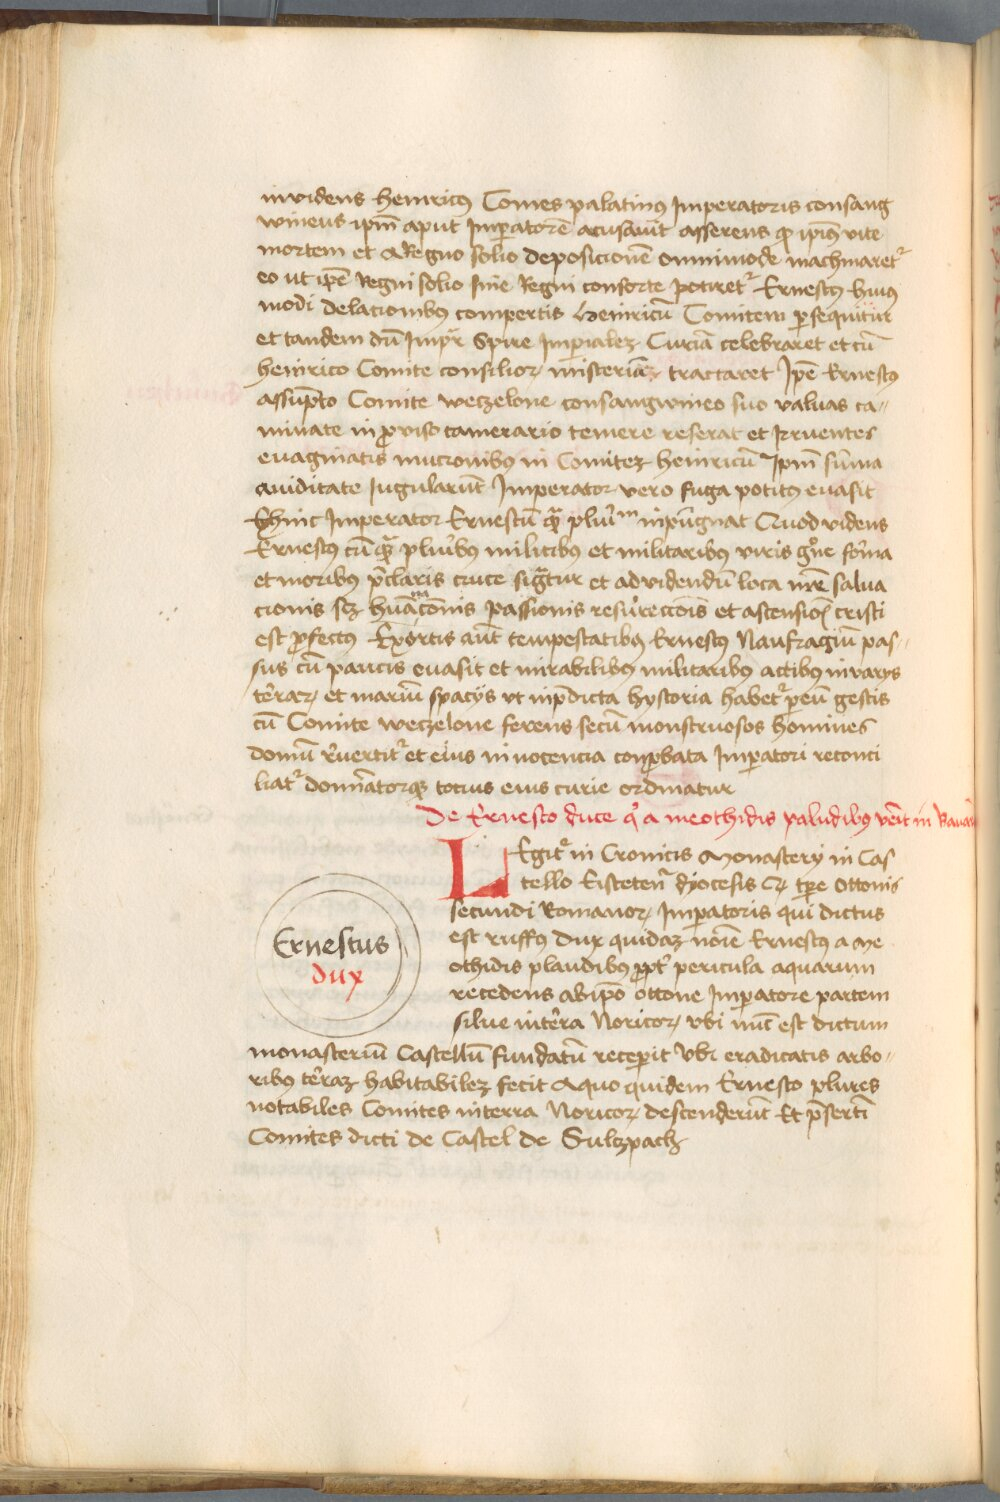 invidens heinricus Comes palatinus Imperatoris consang
wineus ipm̄ aput Imꝑatorē acusauit asserens ꝙ ipius vite
mortem et a Regno solio deposicionē omnimode machinaret᷑
eo ut ipē Regni solio sine Regni consorte potiret᷑ Ernestus huius
modi delacionibus compertis heinricū Comitem ꝑsequitur
et tandem dū Impr̄ Spire Imꝑialeꝫ Curiā celebraret et cū
heinrico Comite consilioꝝ misteria tractaret Ipē Ernestus
assūpto Comite weczelone consangwineo suo valuas ca//
minate inproviso camerario temere reserat et Irruentes
euaginatis mucronibus in Comiteꝫ heinricū Ipm̄ sūma
auiditate Iugularūt Imperator vero fuga potitus euasit
Ehinc Imperator Ernestū quā pluīm inpugnat Quod videns
Ernestus cū quā pluribus militibus et militaribus viris gne forma
et moribus p̄claris cruce sigtur et ad videndū loca nr̄e salua
cionis scꝫ huātionis passionis resurecc̄ois et ascension̄ cristi
est ꝓfectus Exortis aūt tempestatibus Ernestus Naufragiū pas//
sus cū paucis euasit et mirabilibus militaribus actibus in varys
terraꝝ et mariū spacijs vt in p̄dicta hystoria habet᷑ ꝑ eū gestis
cū Comite weczelone ferens secū monstruosos homines
domū reuertit᷑ et eius innocencia conꝓbata Imꝑatori reconci
liat᷑ domīatorqꝫ tocius eius curie ordinatur
De Ernesto duce q̇ a meothidis paludibus veīt in Bauar
LEgit᷑ in Cronicis Monastery in Cas
tello Eisteten᷑ dyocesis Qꝫ tꝑe Ottonis
secundi Romanoꝝ Imꝑatoris qui dictus
est ruffus Dux quidaꝫ noīe Ernestus a me
othidis plaudibus ꝓpt᷑ pericula aquarum
recedens ab ipō Ottone Imꝑatore partem
silue in terra Noricoꝝ vbi nūc est dictum
monasteriū Castellū fundatū receperit Vbi eradicatis arbo//
ribus terraꝫ habitabileꝫ fecit A quo quidem Ernesto plures
notabiles Comites in terra Noricoꝝ descenderūt Et p̄sertī
Comites dicti de Castel de Sulczpach
Ernestus
dux